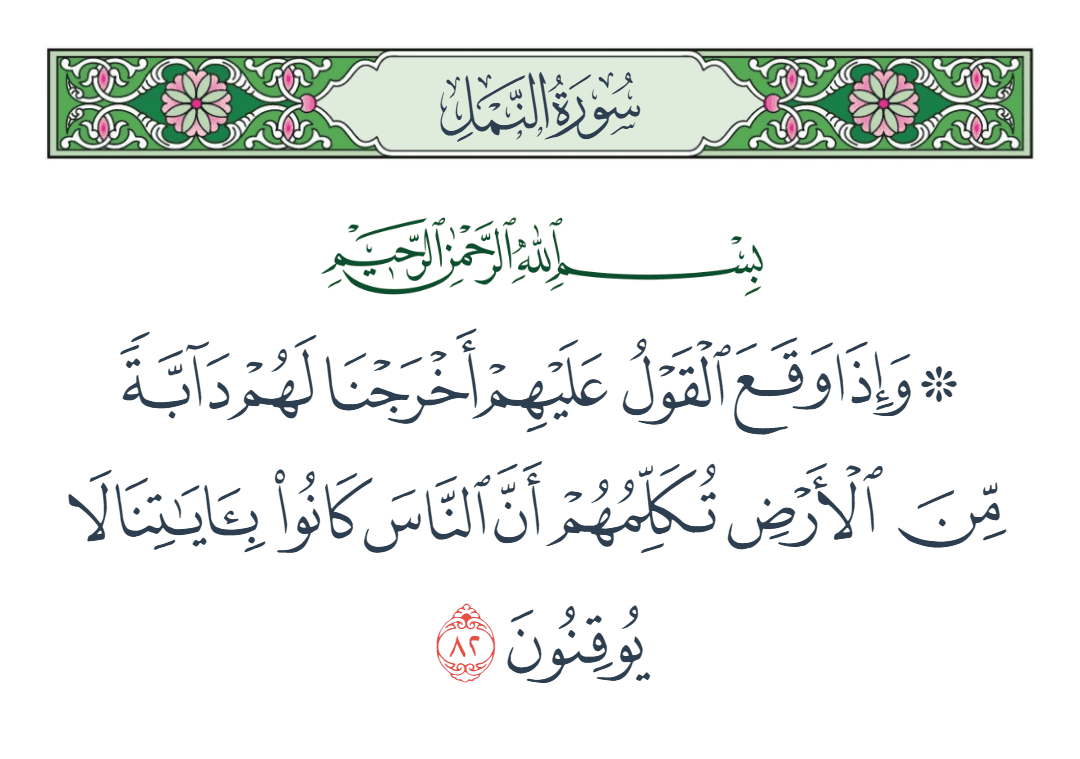 سُورَةُ النَّمْلِ
بِسْمِ ٱللَّهِ ٱلرَّحْمَٰنِ ٱلرَّحِيمِ
۞ وَإِذَا وَقَعَ ٱلْقَوْلُ عَلَيْهِمْ أَخْرَجْنَا لَهُمْ دَآبَّةً
مِّنَ ٱلْأَرْضِ تُكَلِّمُهُمْ أَنَّ ٱلنَّاسَ كَانُوا۟ بِـَٔايَـٰتِنَا لَا
يُوقِنُونَ ٨٢